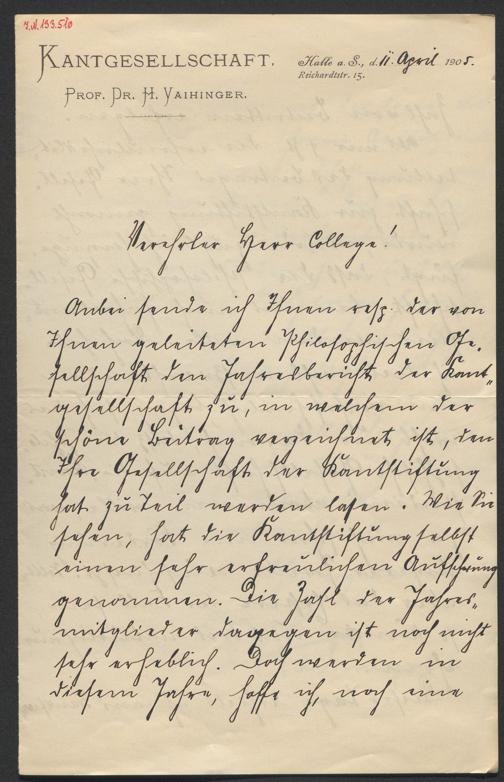 J.N. 133.510
KANTGESELLSCHAFT.
Halle a. S., d. 11. April 1905.
Reichardtstr. 15.
PROF. DR. H. VAIHINGER.
Verehrter Herr College!
Anbei sende ich Ihnen resp. der von
Ihnen geleiteten Philosophischen Ge-
sellschaft den Jahresbericht der Kant-
gesellschaft zu, in welchem der
schöne Beitrag verzeichnet ist, den
Ihre Gesellschaft der Kantstiftung
hat zu Teil werden lassen. Wie Sie
sehen, hat die Kantstiftung selbst
einen sehr erfreulichen Aufschwung
genommen. Die Zahl der Jahres-
mitglieder dagegen ist noch nicht
sehr erheblich. Doch werden in
diesem Jahre, hoffe ich, noch eine